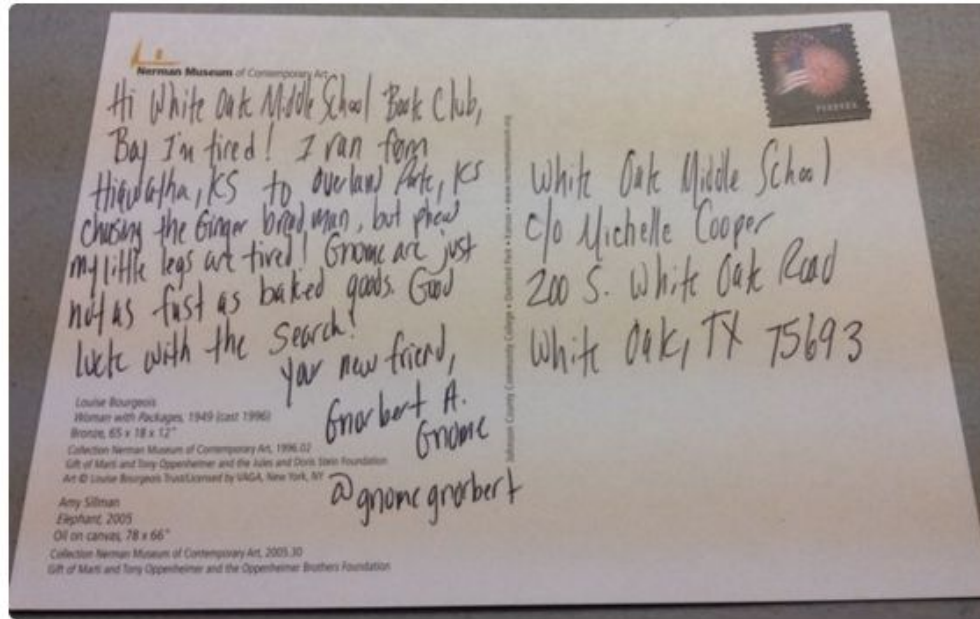 Nerman Museum of Contemporary Art
Hi White Oak Middle School Book Club,
Boy I'm tired! I ran form
Hiawatha, KS to Overland Park, KS
chasing the Ginger bread man, but phew
my little legs are tired! Gnome are just
not as fast as baked goods. Good
luck with the search!
your new friend,
Gnorbert A.
Gnome
@gnomegnorbert
Louise Bourgeois
Woman with Packages, 1949 (cast 1996)
Bronze, 65 x 18 x 12"
Collection Nerman Museum of Contemporary Art, 1996.02
Gift of Marti and Tony Oppenheimer and the Jules and Doris Stein Foundation
Art © Louise Bourgeois Trust/Licensed by VAGA, New York, NY
Amy Sillman
Elephant, 2005
Oil on canvas, 78 x 66"
Collection Nerman Museum of Contemporary Art, 2005.30
Gift of Marti and Tony Oppenheimer and the Oppenheimer Brothers Foundation
Johnson County Community College • Overland Park • Kansas • www.nermanmuseum.org
FOREVER
White Oak Middle School
c/o Michelle Cooper
200 S. White Oak Road
White Oak, TX 75693